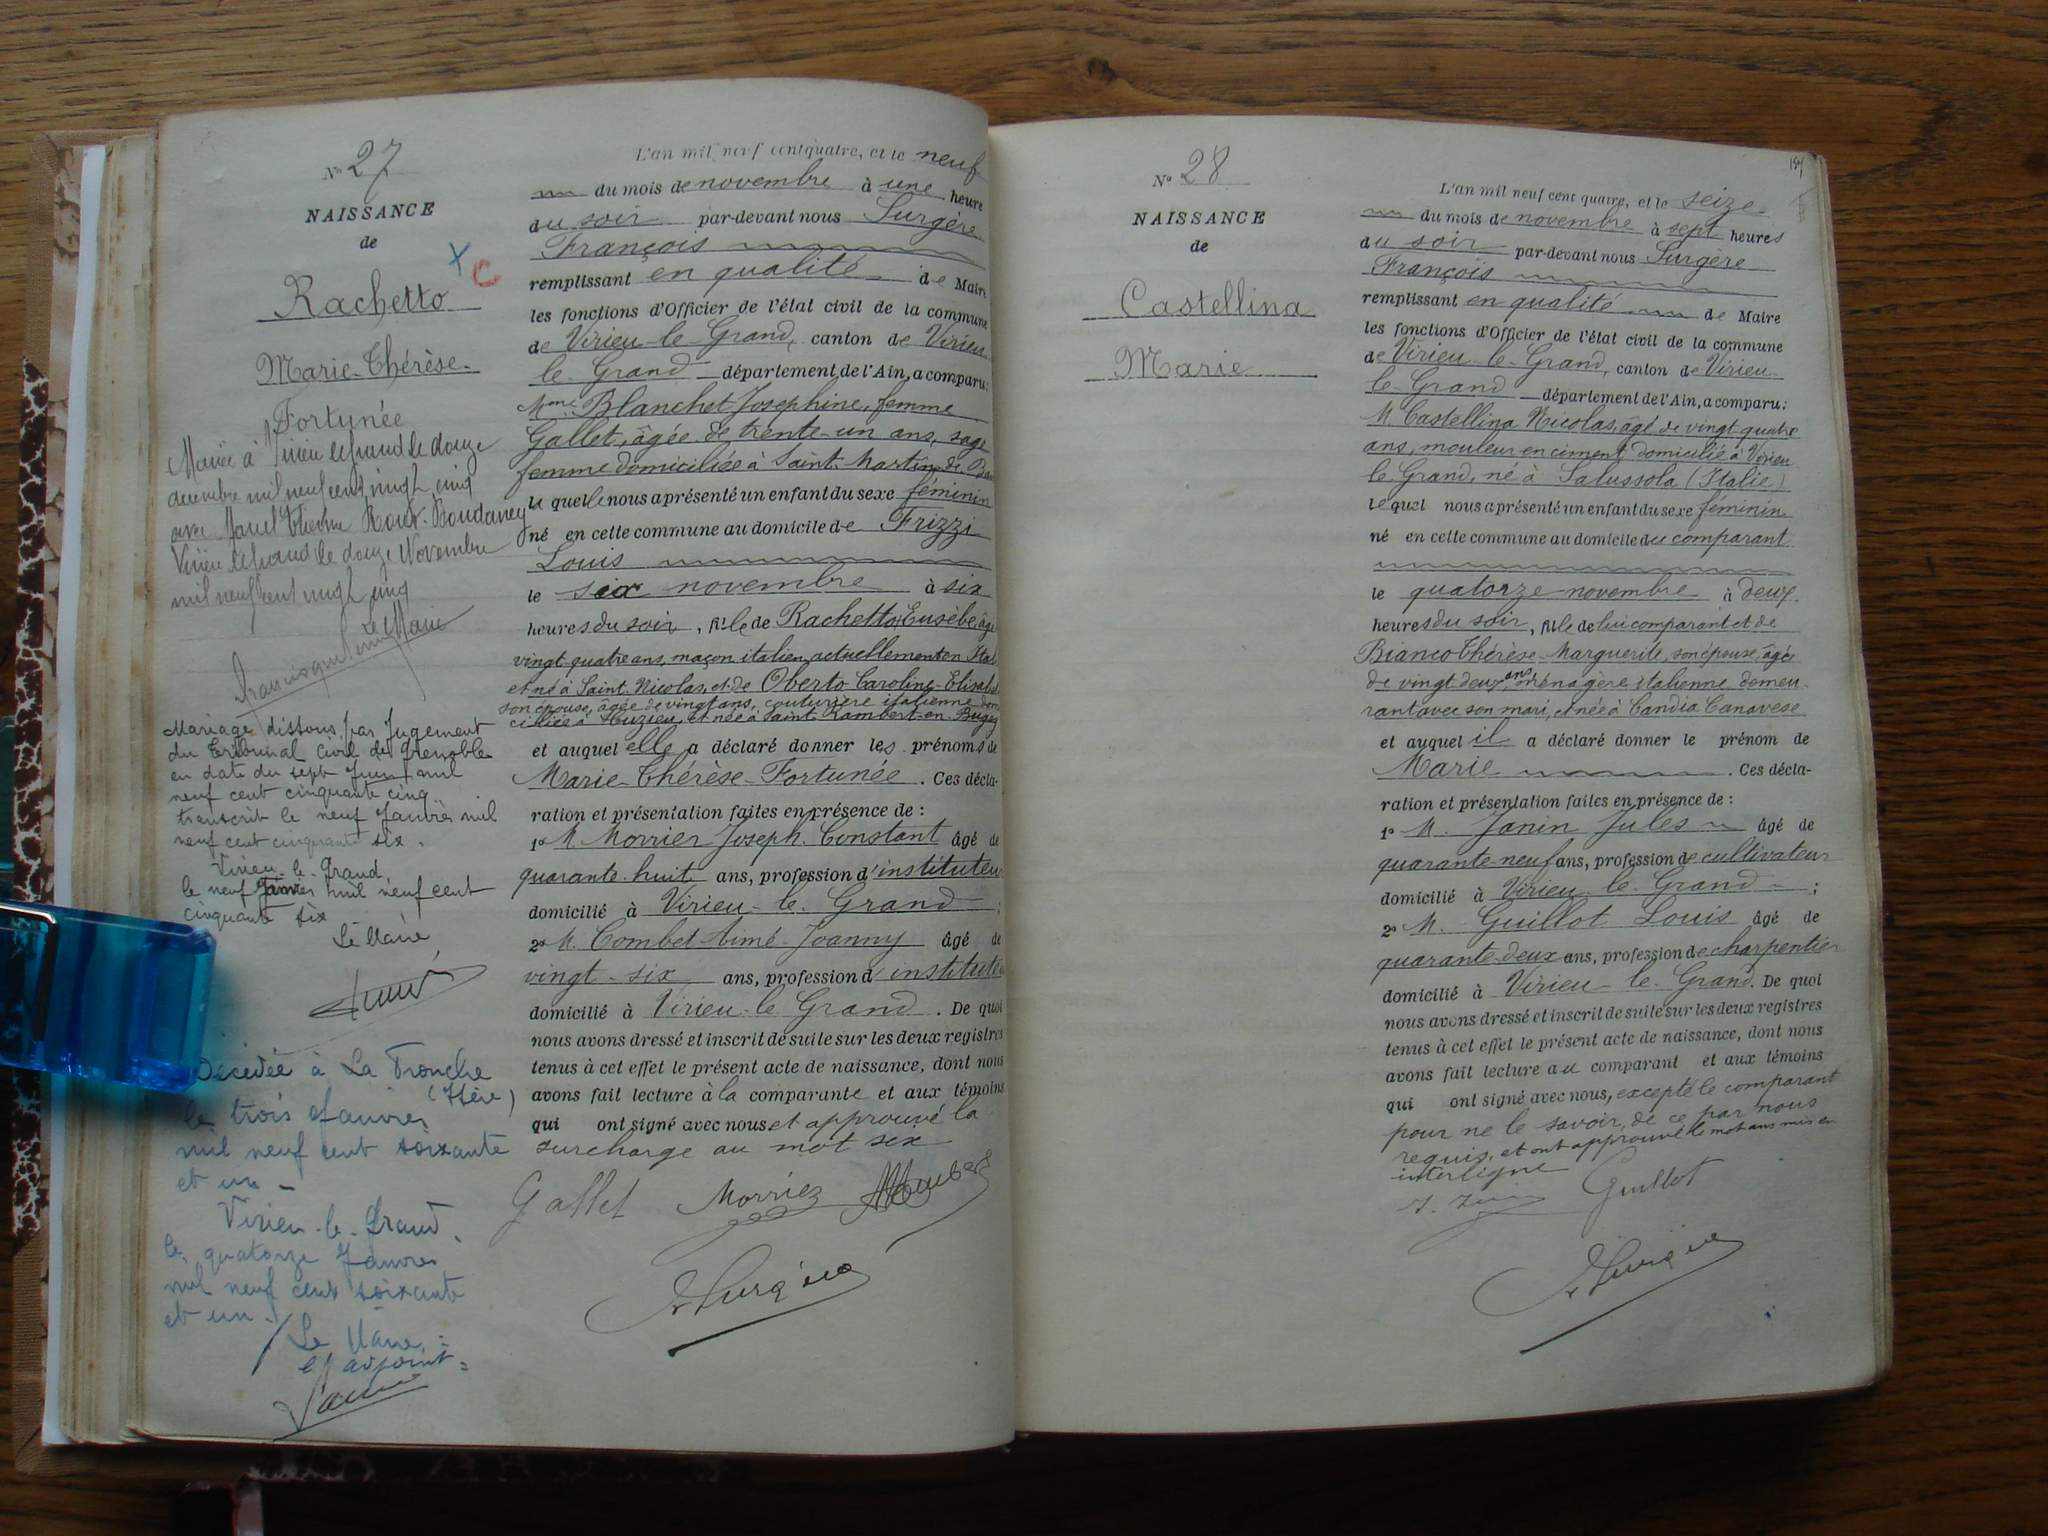 Nº 27
NAISSANCE
de
Rachetto
Marie-Thérèse-
Fortunée
Mariée à Virieu le grand le douze
decembre mil neuf cent vingt cinq
avec Marcel Etienne Roux-Boudaney
Virieu le grand le douze Novembre
mil neuf cent vingt cinq
Le Maire
Mariage dissous par Jugement
du Tribunal Civil de Grenoble
en date du sept Juin mil
neuf cent cinquante cinq
transcrit le neuf Janvier mil
neuf cent cinquante six.
Virieu-le-Grand,
le neuf Janvier mil neuf cent
cinquante six
Le Maire
Décédée à La Tronche
(Isère)
le trois Janvier
mil neuf cent soixante
et un -
Virieu-le-Grand.
le quatorze Janvier
mil neuf cent soixante
et un.
Le Maire,
adjoint
X C
L'an mil neuf cent quatre, et le neuf
du mois de novembre à une heure
du soir par-devant nous Surgère
François
remplissant en qualité de Maire
les fonctions d'Officier de l'état civil de la commune
de Virieu-le-Grand, canton de Virieu
le-Grand département de l'Ain, a comparu:
Mme Blanchet Josephine, femme
Gallet, âgée de trente-un ans, sage
femme domiciliée à Saint-Martin-de-
la quelle nous a présenté un enfant du sexe féminin
né en cette commune au domicile de Frizzi
Louis
le six novembre à six
heures du soir, fille de Rachetto Eusèbe, âgé
vingt quatre ans, maçon italien actuellement en Ital
et né à Saint-Nicolas, et de Oberto Caroline-Elisabeth
son épouse, âgée de vingt ans, couturière italienne domi
ciliée à Cuzieu, et née à Saint-Rambert-en-Bugey
et auquel elle a déclaré donner les prénoms de
Marie-Thérèse-Fortunée. Ces décla-
ration et présentation faites en présence de :
1º M. Morrier Joseph-Constant âgé de
quarante-huit ans, profession d'instituteur
domicilié à Virieu-le-Grand ;
2º M. Combet Aimé-Joanny âgé de
vingt-six ans, profession d'instituteur
domicilié à Virieu-le-Grand. De quoi
nous avons dressé et inscrit de suite sur les deux registres
tenus à cet effet le présent acte de naissance, dont nous
avons fait lecture à la comparante et aux témoins
qui ont signé avec nous et approuvé la
surcharge au mot six
Gallet Morriez
Surgère
184
Nº 28
NAISSANCE
de
Castellina
Marie
L'an mil neuf cent quatre, et le seize
du mois de novembre à sept heures
du soir par-devant nous Surgère
François
remplissant en qualité de Maire
les fonctions d'Officier de l'état civil de la commune
de Virieu-le-Grand, canton de Virieu
le-Grand département de l'Ain, a comparu:
M. Castellina Nicolas, âgé de vingt quatre
ans, mouleur en ciment, domicilié à Virieu
le Grand, né à Salussola (Italie)
lequel nous a présenté un enfant du sexe féminin
né en cette commune au domicile du comparant
le quatorze novembre à deux
heures du soir, fille de lui comparant et de
Bianco Thérèse-Marguerite, son épouse, âgée
de vingt deux ans ménagère italienne demeu-
rant avec son mari, et née à Candia Canavese
et auquel il a déclaré donner le prénom de
Marie. Ces décla-
ration et présentation faites en présence de :
1º M. Janin Jules âgé de
quarante-neuf ans, profession de cultivateur
domicilié à Virieu-le-Grand ;
2º M. Guillot Louis âgé de
quarante-deux ans, profession de charpentier
domicilié à Virieu-le-Grand. De quoi
nous avons dressé et inscrit de suite sur les deux registres
tenus à cet effet le présent acte de naissance, dont nous
avons fait lecture au comparant et aux témoins
qui ont signé avec nous, excepté le comparant
pour ne le savoir, de ce par nous
requis, et ont approuvé le mot ans mis en
interligne
J. Janin Guillot
Surgère